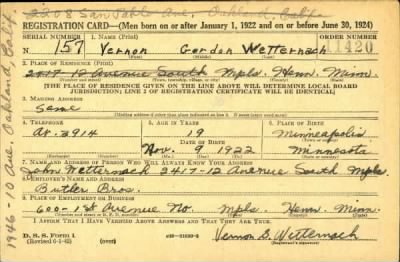 2208 San Pablo Ave. Oakland, Calif.
REGISTRATION CARD—(Men born on or after January 1, 1922 and on or before June 30, 1924)
SERIAL NUMBER 1. NAME (Print) ORDER NUMBER
N 157 Vernon Gordon Wetternach 11420
(First) (Middle) (Last)
2. PLACE OF RESIDENCE (Print)
2417 12 Avenue South Mpls. Henn. Minn.
(Number and street) (Town, township, village, or city) (County) (State)
[THE PLACE OF RESIDENCE GIVEN ON THE LINE ABOVE WILL DETERMINE LOCAL BOARD
JURISDICTION; LINE 2 OF REGISTRATION CERTIFICATE WILL BE IDENTICAL]
3. MAILING ADDRESS
Same
[Mailing address if other than place indicated on line 2. If same, insert word same]
4. TELEPHONE 5. AGE IN YEARS 6. PLACE OF BIRTH
At. 3914 19 Minneapolis
DATE OF BIRTH (Town or county)
Nov. 9 1922 Minnesota
(Exchange) (Number) (Mo.) (Day) (Yr.) (State or country)
7. NAME AND ADDRESS OF PERSON WHO WILL ALWAYS KNOW YOUR ADDRESS
John Wetternach 2417-12 Avenue South Mpls.
8. EMPLOYER'S NAME AND ADDRESS
Butler Bros.
9. PLACE OF EMPLOYMENT OR BUSINESS
600-1st Avenue No. Mpls. Henn. Minn.
(Number and street or R. F. D. number) (Town) (County) (State)
I AFFIRM THAT I HAVE VERIFIED ABOVE ANSWERS AND THAT THEY ARE TRUE.
D. S. S. Form 1
(Revised 6-1-42) (over)
Vernon G. Wetternach
(Registrant's signature)
1946-10 Ave. Oakland, Calif.